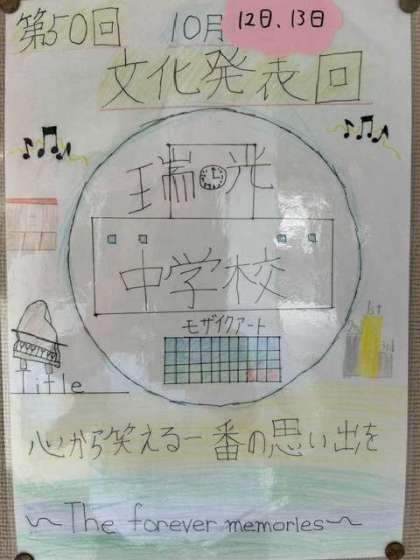 第50回 10月 12日、13日
文化発表回
瑞光
中学校
モザイクアート
1st
Title
心から笑える一番の思い出を
〜The forever memories〜